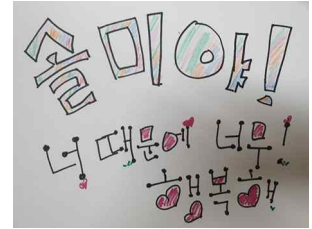 솔미야!
너 때문에 너무
행복해